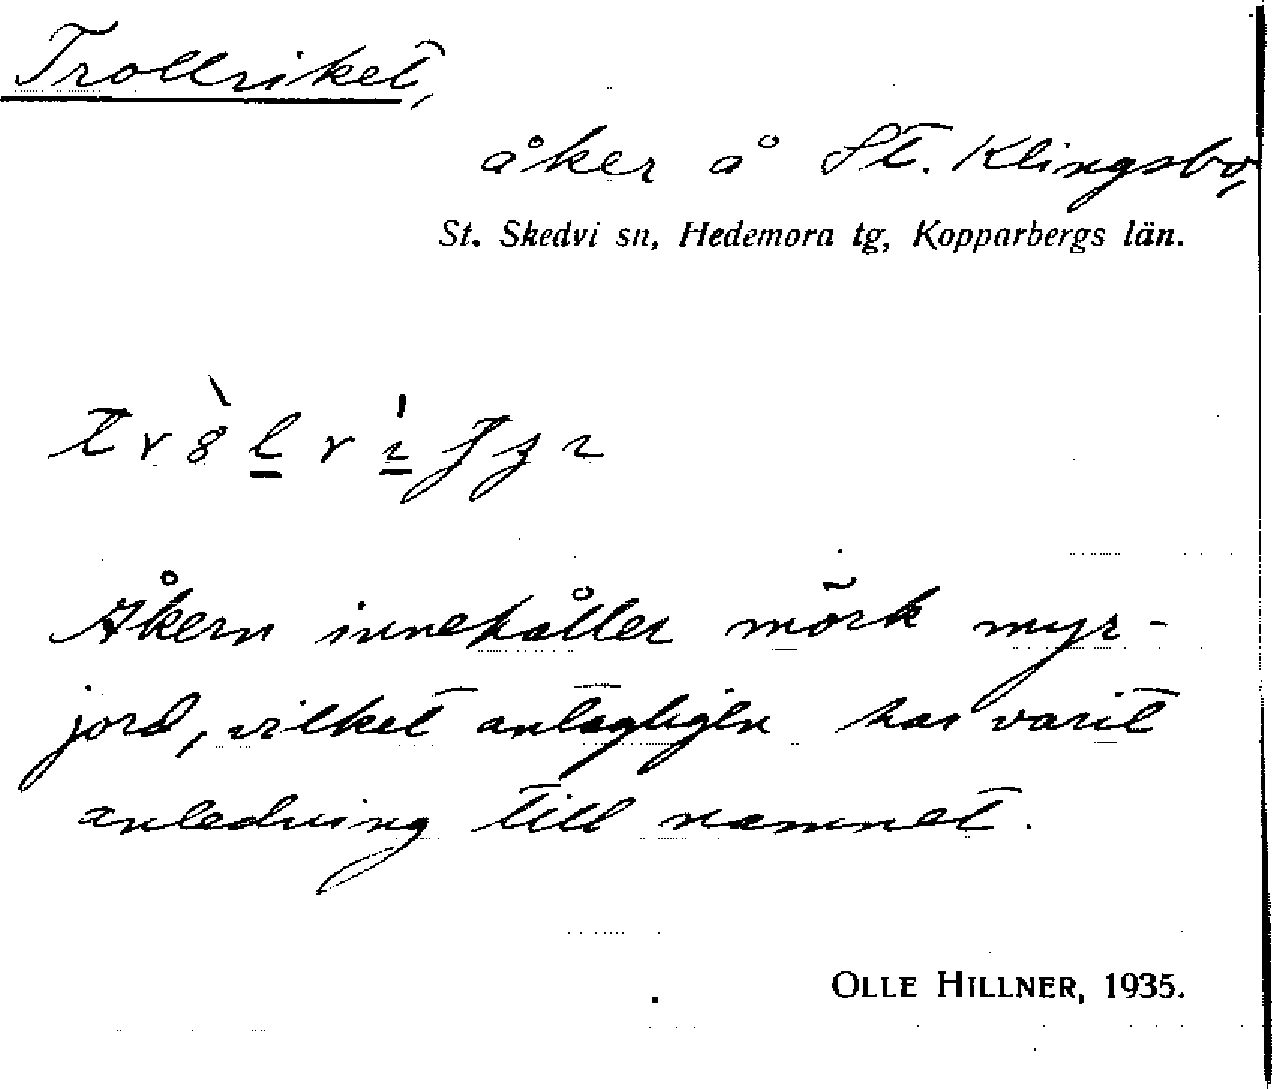 Trollriket,
åker å St. Klingsbo,
St. Skedvi sn, Hedemora tg, Kopparbergs län.
Åkern innehåller mörk myr-
jord, vilket antagligen har varit
anledning till namnet.
OLLE HILLNER, 1935.